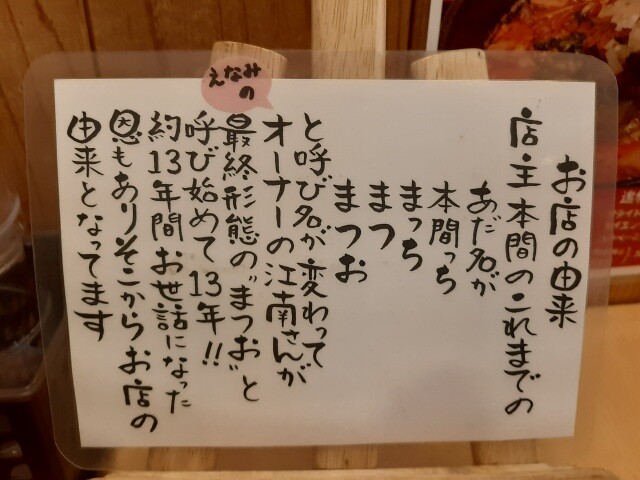 お店の由来
店主本間のこれまでの
あだ名が
本間っち
まっち
まつ
まつお
と呼び名が変わって
オーナーの江南さんが
えなみ
の
最終形態の"まつお"と
呼び始めて13年!!
約13年間お世話になった
恩もありそこからお店の
由来となってます